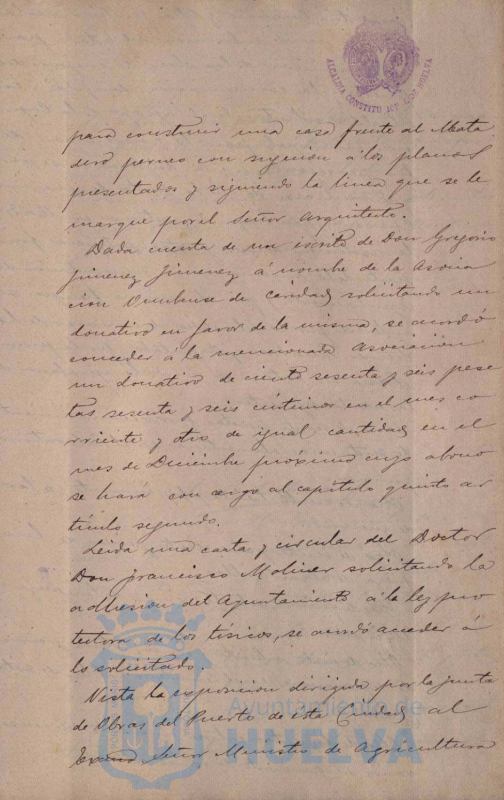 ALCALDIA CONSTITUCIONAL DE HUELVA
para construir una casa frente al Mata
dero perneo con sujecion á los planos
presentados y siguiendo la linea que se le
marque por el Señor Arquitecto.
Dada cuenta de un escrito de Don Gregorio
Jimenez Jimenez á nombre de la Asocia
cion Onubense de Caridad solicitando un
donativo en favor de la misma, se acordó
conceder á la mencionada Asociacion
un donativo de ciento sesenta y seis pese
tas sesenta y seis céntimos en el mes co
rriente y otro de igual cantidad en el
mes de Diciembre próximo cuyo abono
se hará con cargo al capítulo quinto ar
tículo segundo.
Leida una carta y circular del Doctor
Don Francisco Moliner solicitando la
adhesion del Ayuntamiento á la ley pro
tectora de los tísicos, se acordó acceder á
lo solicitado.
Vista la exposicion dirigida por la Junta
de Obras del Puerto de esta Ciudad al
Excmo Señor Ministro de Agricultura
Ayuntamiento de
HUELVA